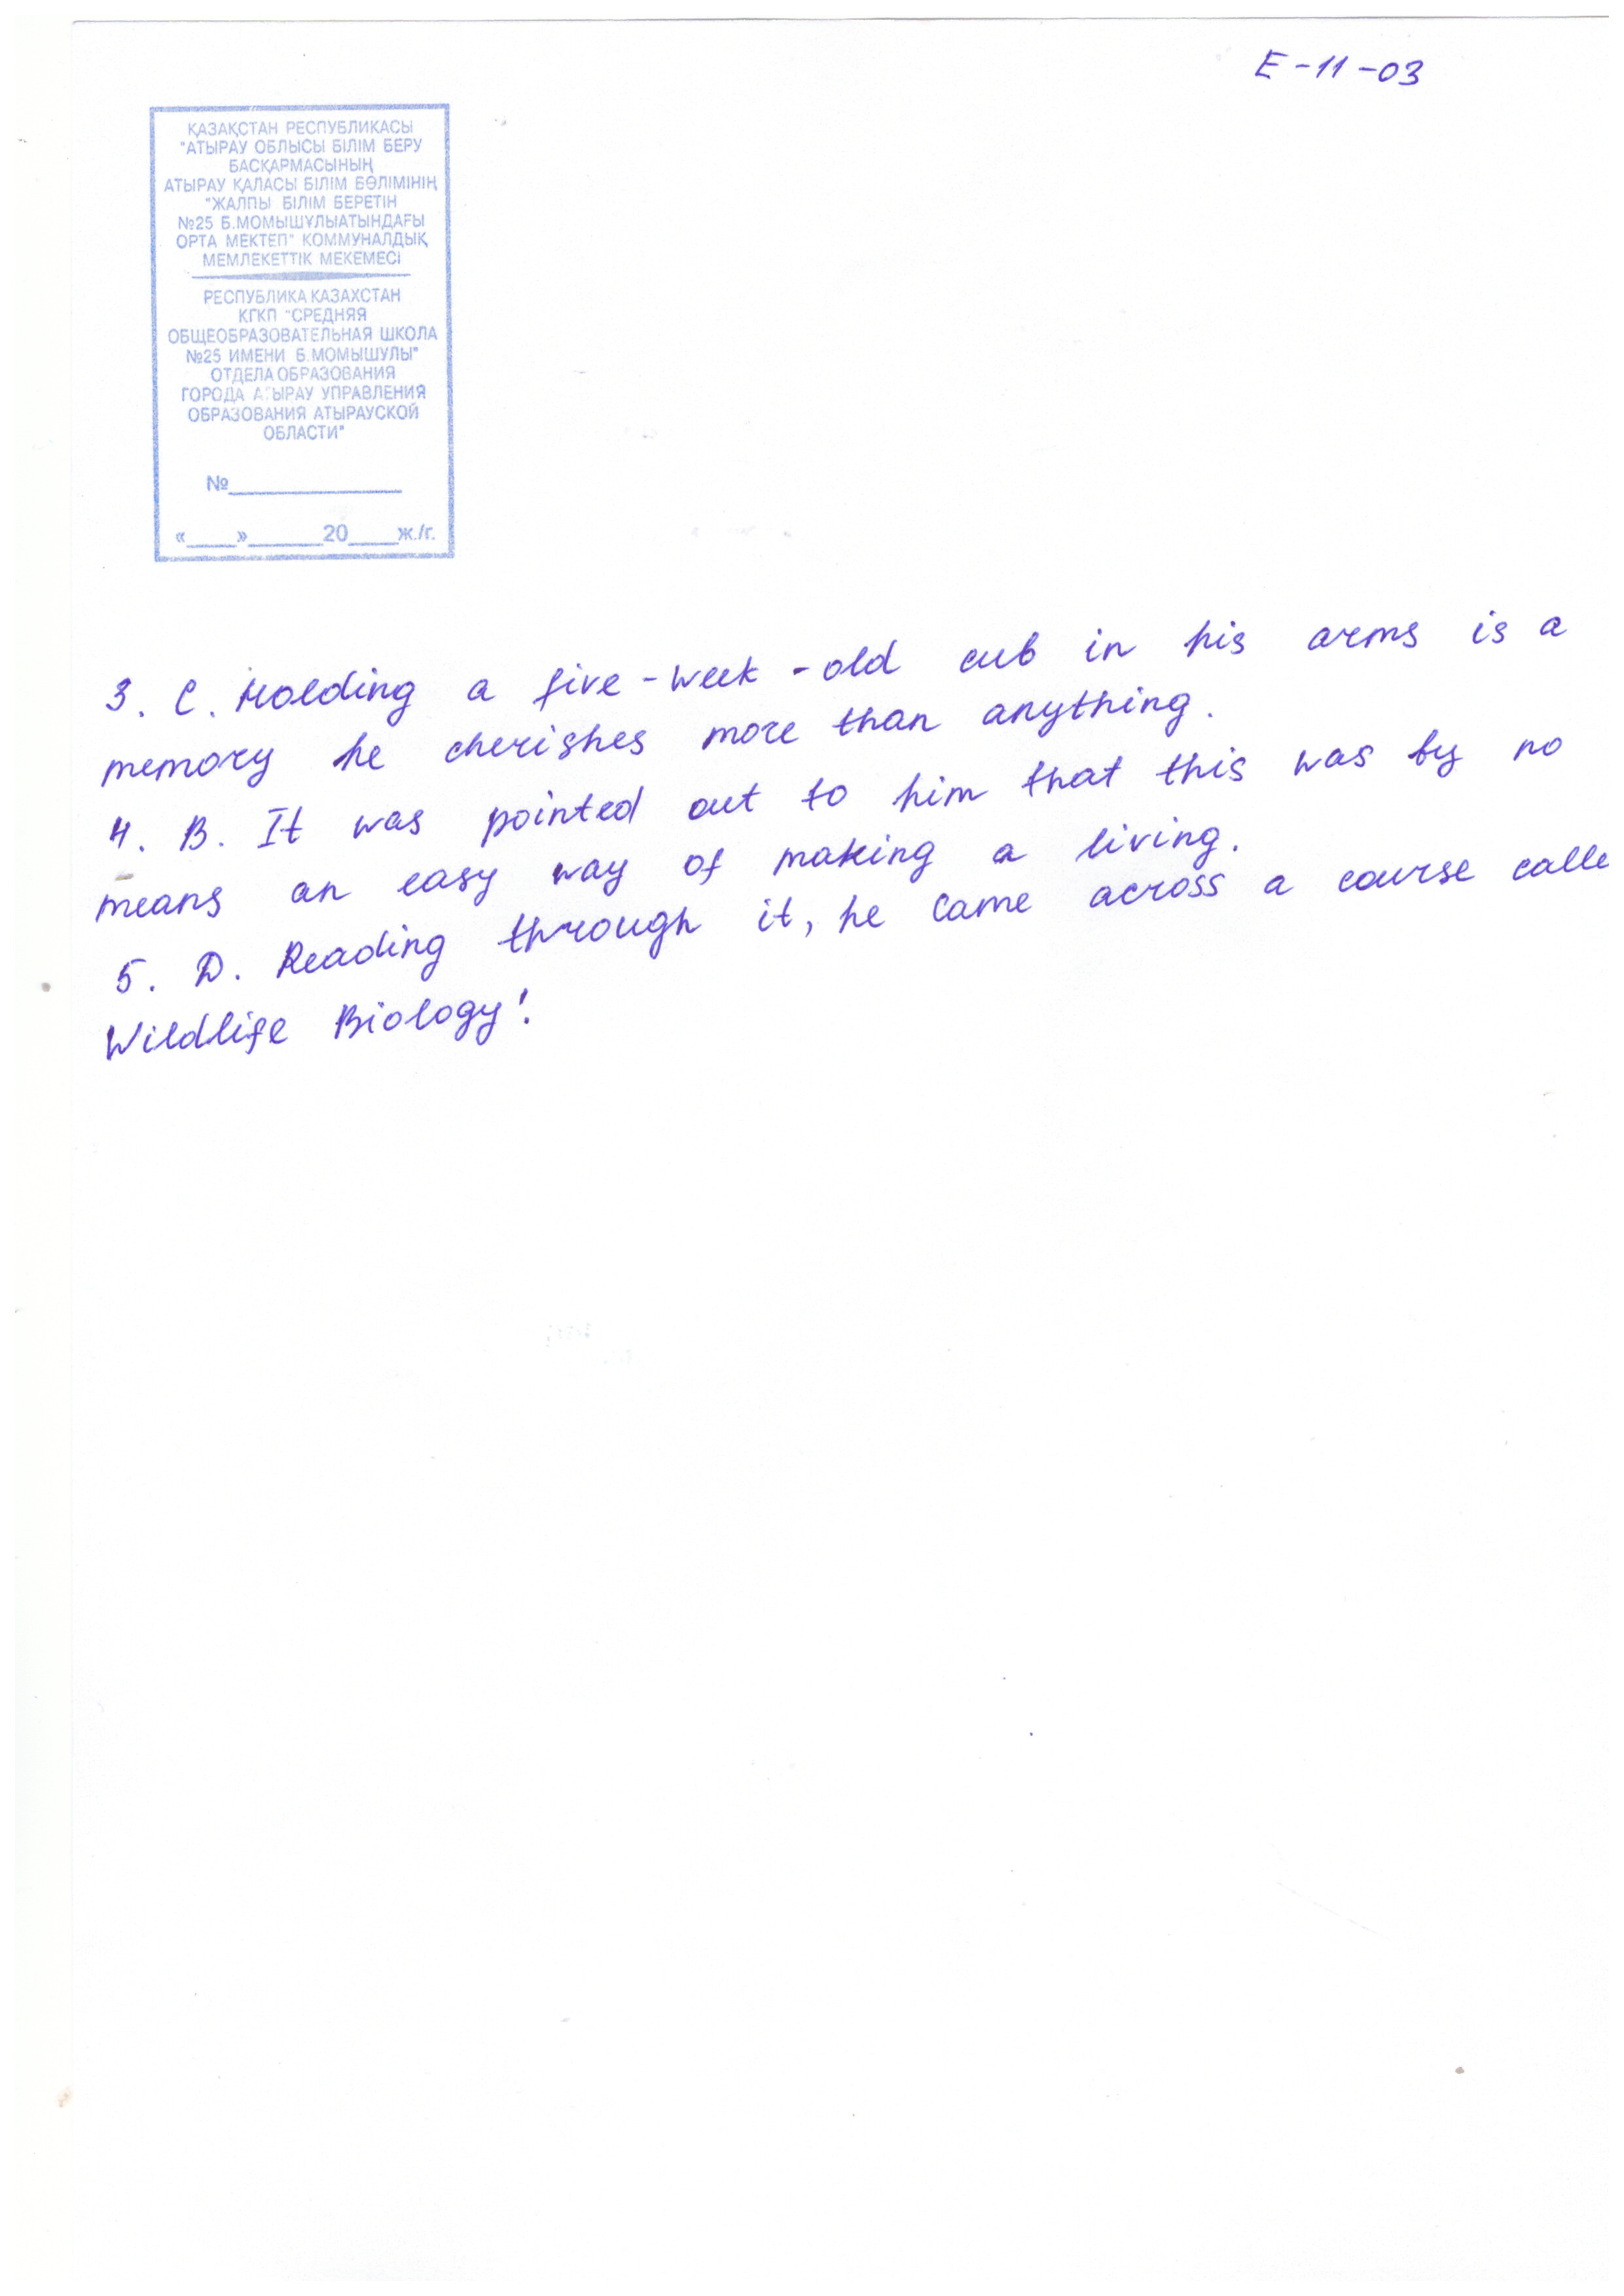 E-11-03
ҚАЗАҚСТАН РЕСПУБЛИКАСЫ
"АТЫРАУ ОБЛЫСЫ БІЛІМ БЕРУ
БАСҚАРМАСЫНЫҢ
АТЫРАУ ҚАЛАСЫ БІЛІМ БӨЛІМІНІҢ
"ЖАЛПЫ БІЛІМ БЕРЕТІН
№25 Б.МОМЫШҰЛЫАТЫНДАҒЫ
ОРТА МЕКТЕП" КОММУНАЛДЫҚ
МЕМЛЕКЕТТІК МЕКЕМЕСІ
РЕСПУБЛИКА КАЗАХСТАН
КГКП "СРЕДНЯЯ
ОБЩЕОБРАЗОВАТЕЛЬНАЯ ШКОЛА
№25 ИМЕНИ Б.МОМЫШУЛЫ"
ОТДЕЛА ОБРАЗОВАНИЯ
ГОРОДА АТЫРАУ УПРАВЛЕНИЯ
ОБРАЗОВАНИЯ АТЫРАУСКОЙ
ОБЛАСТИ"
№______________
«____»______20____ж./г.
3. C. Holding a five-week-old cub in his arms is a
memory he cherishes more than anything.
4. B. It was pointed out to him that this was by no
means an easy way of making a living.
5. D. Reading through it, he came across a course calle
Wildlife Biology!